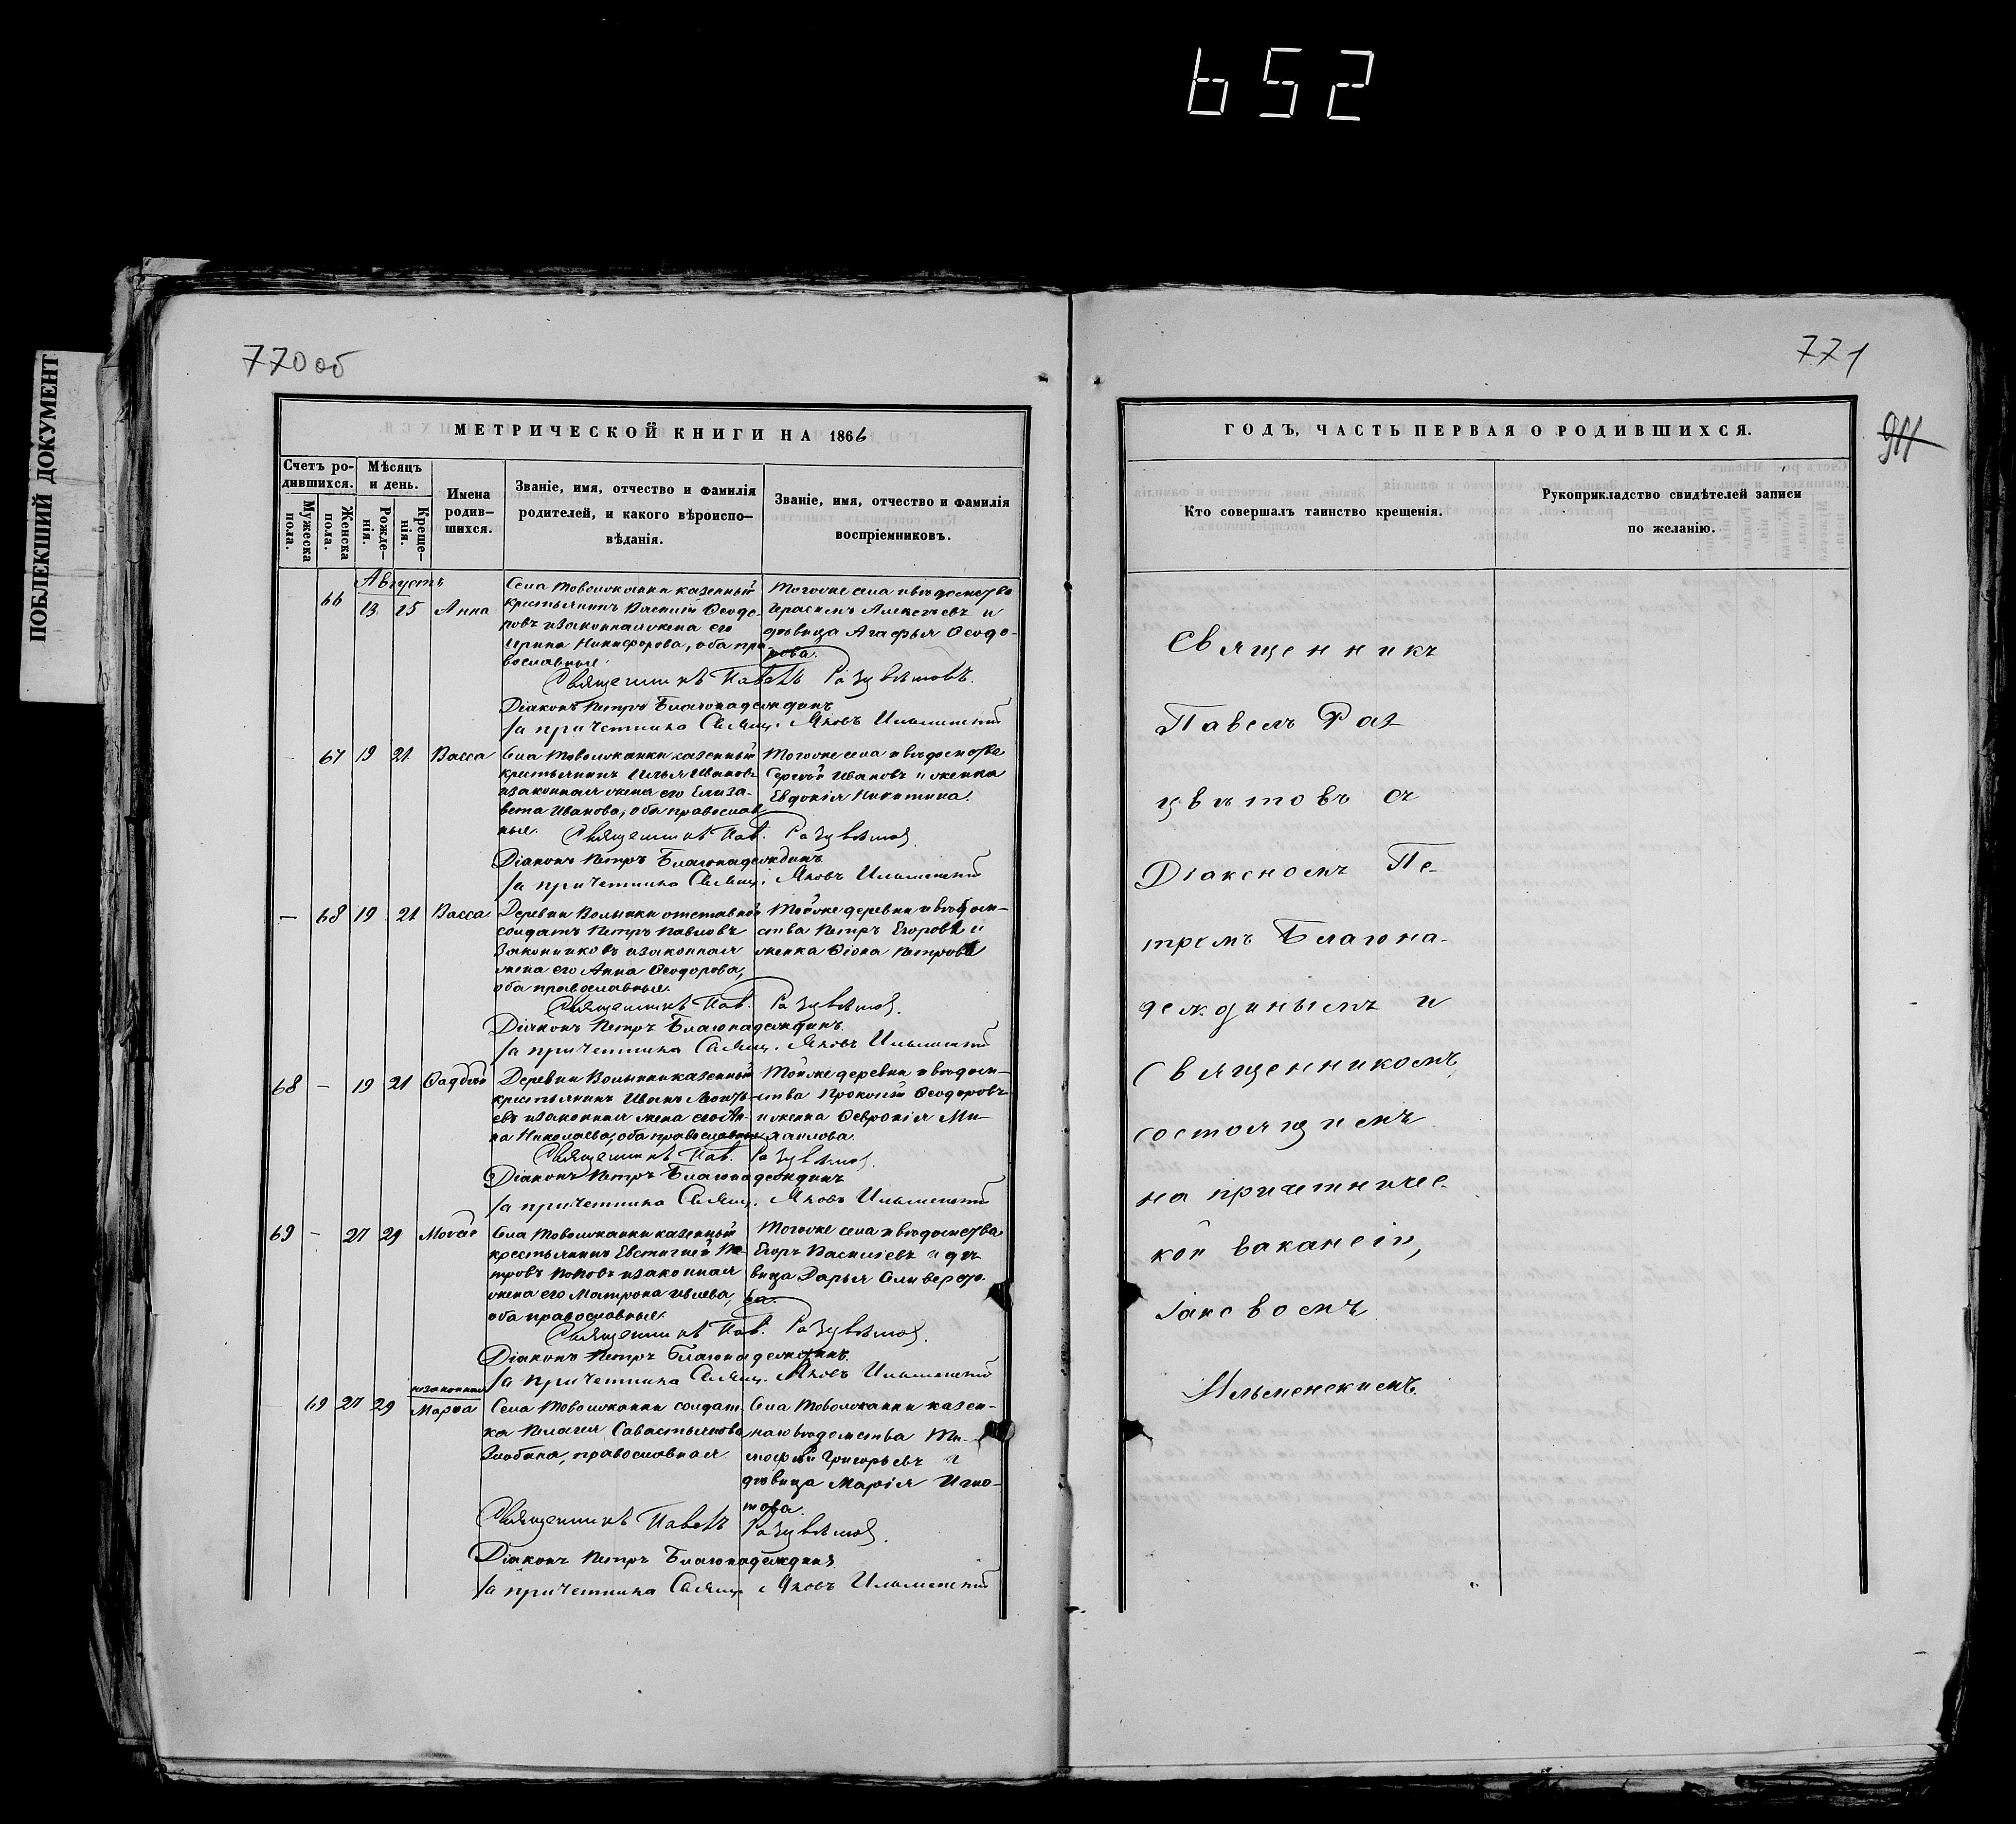 652
ПОБЛЕКШИЙ ДОКУМЕНТ
770 об
МЕТРИЧЕСКОЙ КНИГИ НА 1866
Счетъ ро-
дившихся.
Мужеска
пола.
Женска
пола.
Мѣсяцъ
и день.
Рожде-
нія.
Креще-
нія.
Имена
родив-
шихся.
Званіе, имя, отчество и фамилія
родителей, и какого вѣроиспо-
вѣданія.
Званіе, имя, отчество и фамилія
воспріемниковъ.
Августъ
66 13 15 Анна
Села Товолжанки казенный
крестьянинъ Василій Ѳеодо-
ровъ и законная жена его
Ирина Никифорова, оба пра-
вославные.
Тогоже села и вѣдомства
Герасимъ Алексѣевъ и
дѣвица Агафья Ѳеодо-
рова.
Священникъ Павелъ Разцвѣтовъ.
Діаконъ Петръ Благонадеждинъ
За причетника Свящ. Яковъ Ильменскій
67 19 21 Васса
Села Товолжанки казенный
крестьянинъ Илья Ивановъ
и законная жена его Елиза-
вета Иванова, оба православ
ные.
Тогоже села и вѣдомства
Сергѣй Ивановъ и женка
Евдокія Никитина.
Священникъ Пав. Разцвѣтов
Діаконъ Петръ Благонадеждинъ
За причетника Свящ. Яковъ Ильменскій
— 68 19 21 Васса
Деревни Волынки отставной
солдатъ Петръ Павловъ
Законниковъ и законная
жена его Анна Ѳеодорова,
оба православные.
Тойже деревни и вѣдом-
ства Петръ Егоровъ и
женка Ѳіона Петрова
Священникъ Пав. Разцвѣтов.
Діаконъ Петръ Благонадеждинъ.
За причетника Свящ. Яковъ Ильменскій
68 — 19 21 Ѳаддей
Деревни Волынки казенный
крестьянинъ Иванъ
евъ и законная жена его Ан-
на Николаева, оба православные
Тойже деревни и вѣдом-
ства Прокопій Ѳеодоровъ
и женка Ѳевронія Ми-
хаилова.
Священникъ Пав. Разцвѣтов.
Діаконъ Петръ Благонадеждинъ
За причетника Свящ. Яковъ Ильменскій
69 — 27 29 Моѵсей
Села Товолжанки казенный
крестьянинъ Евстигней Пе-
тровъ Поповъ и законная
жена его Матрона
оба православные.
Тогоже села и вѣдомства
Егоръ Василіевъ и дѣ-
вица Дарья Селиверсто-
ва.
Священникъ Пав. Разцвѣтов.
Діаконъ Петръ Благонадеждинъ.
За причетника Свящ. Яковъ Ильменскій
незаконная
69 27 29 Марѳа
Села Товолжанки солдат-
ка Пелагея Савастьянова
Злобина, православная
Села Товолжанки казен-
наго вѣдомства Ти-
мофей Григорьевъ и
дѣвица Марія Игна-
това.
Священникъ Павелъ Разцвѣтов.
Діаконъ Петръ Благонадеждинъ
За причетника Свящ. Яковъ Ильменскій
771
911
ГОДЪ, ЧАСТЬ ПЕРВАЯ О РОДИВШИХСЯ.
Кто совершалъ таинство крещенія.
Рукоприкладство свидѣтелей записи
по желанію.
Священникъ
Павелъ Раз-
цвѣтовъ съ
Діакономъ Пе-
тромъ Благона-
деждинымъ и
Священникомъ,
состоящимъ
на причетниче-
кой ваканеіи,
Іаковомъ
Ильменскимъ.